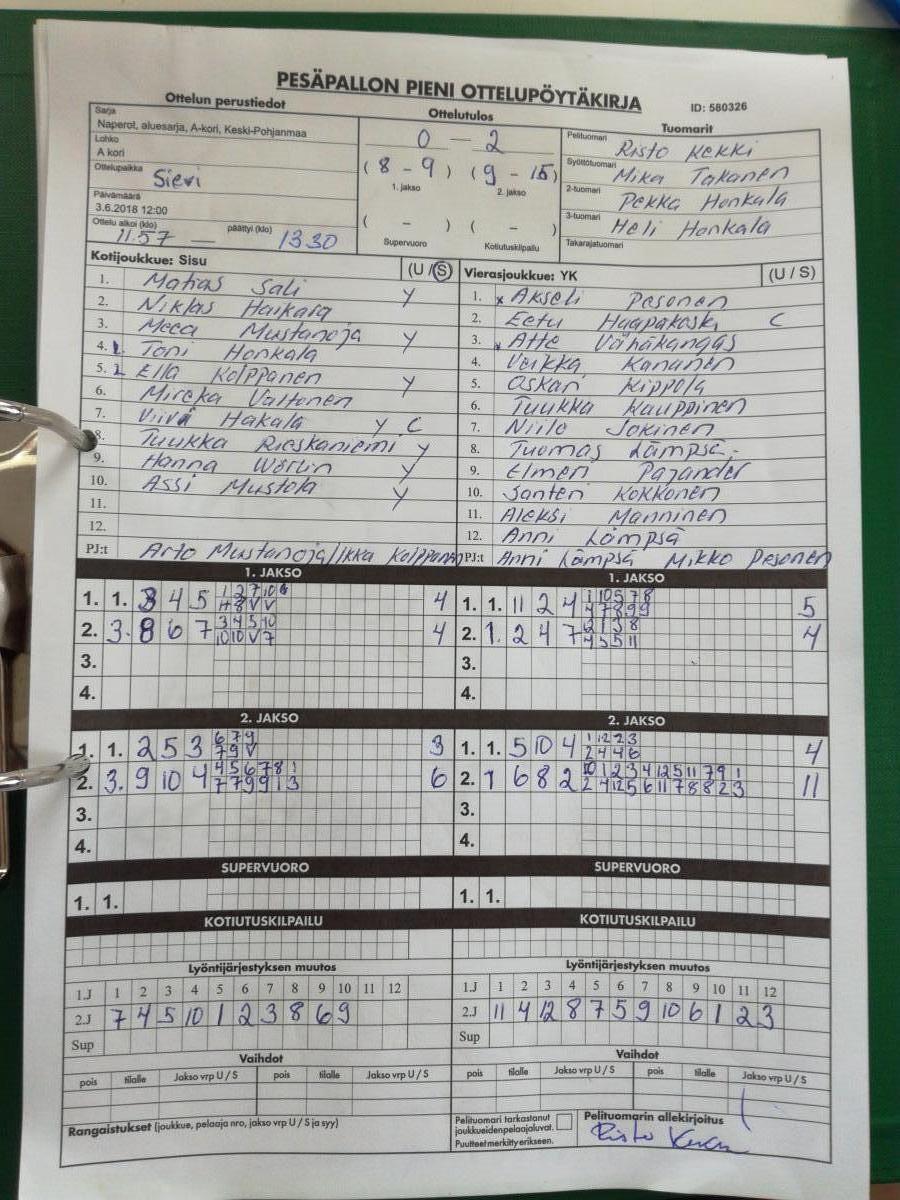 PESÄPALLON PIENI OTTELUPÖYTÄKIRJA
ID: 580326
Ottelun perustiedot
Ottelutulos
Tuomarit
Sarja
Naperot, aluesarja, A-kori, Keski-Pohjanmaa
Lohko
A kori
Ottelupaikka Sievi
Päivämäärä
3.6.2018 12:00
Ottelu alkoi (klo) päättyi (klo)
11.57 — 13.30
0 – 2
(8 - 9) (9 - 15)
1. jakso 2. jakso
( - ) ( - )
Supervuoro Kotiutuskilpailu
Pelituomari Risto Kekki
Syöttötuomari Mika Takanen
2-tuomari Pekka Honkala
3-tuomari Heli Honkala
Takarajatuomari
Kotijoukkue: Sisu (U/S)
1. Matias Sali Y
2. Niklas Haikara
3. Meea Mustanoja Y
4. 1. Toni Honkala
5. 2 Ella Kolppanen Y
6. Mireka Valtonen
7. Viivi Hakala Y C
8. Tuukka Rieskaniemi Y
9. Hanna Wörlin Y
10. Assi Mustola Y
11.
12.
PJ:t Arto Mustanoja/Ikka Kolppanen
Vierasjoukkue: YK (U / S)
1. x Akseli Pesonen
2. Eetu Haapakoski C
3. x Atte Vähäkangas
4. Veikka Kananen
5. Oskari Kippola
6. Tuukka Kauppinen
7. Niilo Jokinen
8. Tuomas Lämpsä
9. Elmeri Pajander
10. Santeri Kokkonen
11. Aleksi Manninen
12. Anni Lämpsä
PJ:t Anni Lämpsä Mikko Pesonen
1. JAKSO
1. 1. 3 4 5 4
2. 3. 8 6 7 3 4 5 10 4
10 10 V 7
3.
4.
1. JAKSO
1. 1. 11 2 4 1 10 5 7 8 5
4 7 8 9 9
2. 1. 2 4 7 2 1 3 8 4
4 5 5 11
3.
4.
2. JAKSO
1. 1. 2 5 3 6 7 9 3
7 9 V
2. 3. 9 10 4 4 5 6 7 8 1 6
7 7 9 9 1 3
3.
4.
2. JAKSO
1. 1. 5 10 4 1 1 2 2 3 4
2 4 4 6
2. 1 6 8 2 10 1 2 3 4 12 5 11 7 9 1 11
2 4 12 5 6 11 7 8 8 2 3
3.
4.
SUPERVUORO
1. 1.
SUPERVUORO
1. 1.
KOTIUTUSKILPAILU
KOTIUTUSKILPAILU
Lyöntijärjestyksen muutos
1.J 1 2 3 4 5 6 7 8 9 10 11 12
2.J 7 4 5 10 1 2 3 8 6 9
Sup
Lyöntijärjestyksen muutos
1.J 1 2 3 4 5 6 7 8 9 10 11 12
2.J 11 4 12 8 7 5 9 10 6 1 2 3
Sup
Vaihdot
pois tilalle Jakso vrp U / S pois tilalle Jakso vrp U / S
Vaihdot
pois tilalle Jakso vrp U / S pois tilalle Jakso vrp U / S
Rangaistukset (joukkue, pelaaja nro, jakso vrp U / S ja syy)
Pelituomari tarkastanut
joukkueiden pelaajaluvat.
Puutteet merkitty erikseen.
Pelituomarin allekirjoitus
Risto